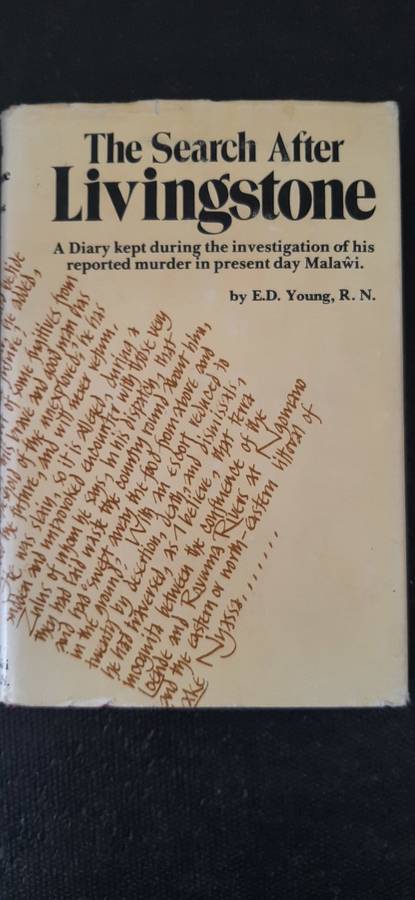 The Search After
Livingstone
A Diary kept during the investigation of his
reported murder in present day Malaŵi.
by E.D. Young, R. N.
of some fugitives from
his brave and good man has
of the unexplored; he has
and will never return.
He was slain, so it is alleged, during a
sudden and unprovoked encounter with those very
Zulus of whom he says, in his dispatch, that
they had laid waste the country round about him,
and had swept away the food from above and
in the ground. With an escort reduced to
twenty by desertion, death, and dismissals,
he had traversed, as I believe, that terra
incognita between the confluence of the
Loende and Rovuma Rivers at Ngomano
and the eastern or north-eastern littoral of
Lake Nyassa.......